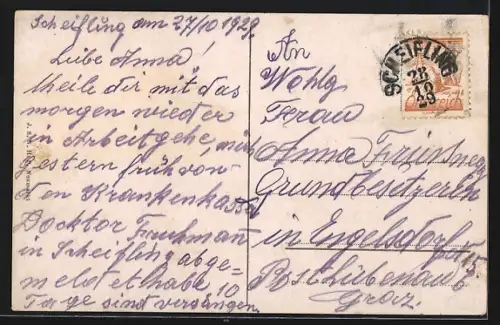 Scheifling am 27/10 1929.
Liebe Anna!
theile dir mit das
morgen wieder
in Arbeit gehe, mich
gestern früh von
den Krankenkassa
Docktor Fruhman
in Scheifling abge-
meldet habe. 10
Tage sind vergangen.
An
Wohlg
Frau
Anna
Grundbesitzerin
in Engelsdorf 15.
Post Liebenau b
Graz.
SCHEIFLING
28
10
29